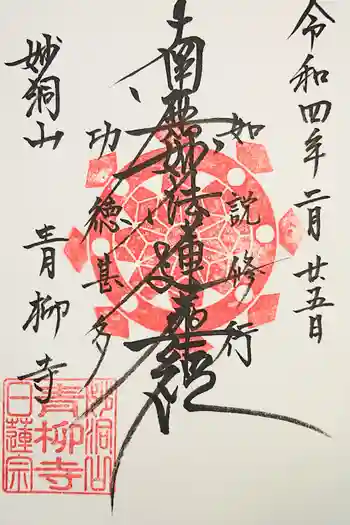 令和四年二月廿五日
如説修行
南無妙法蓮華経
功徳甚多
妙洞山
青柳寺
妙洞山
青柳寺
日蓮宗